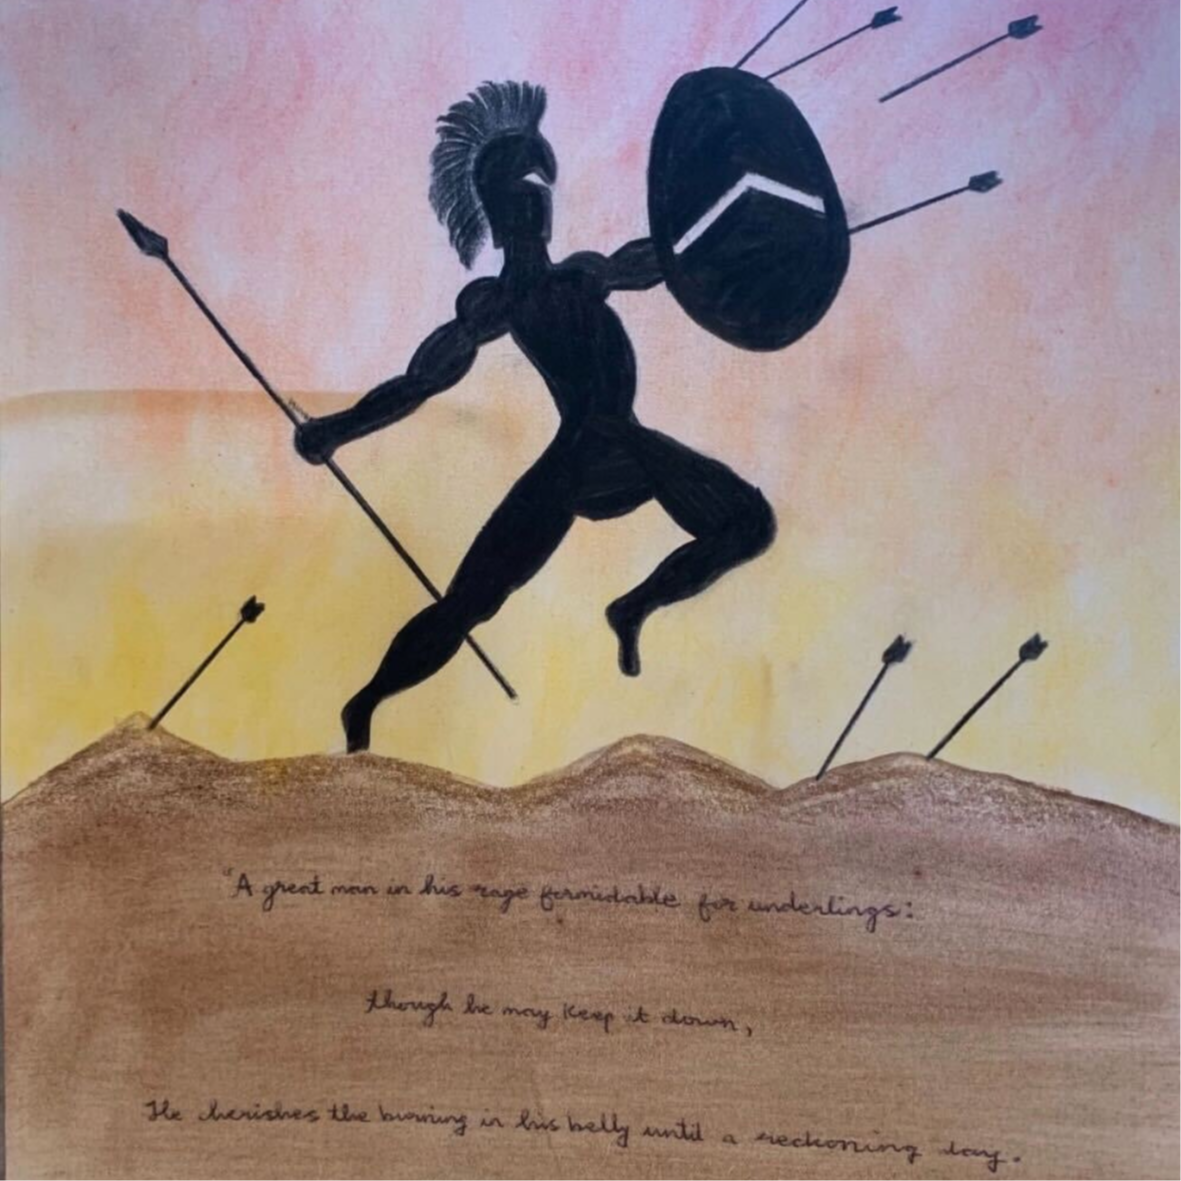 "A great man in his rage formidable for underlings:
though he may keep it down,
He cherishes the burning in his belly until a reckoning day.